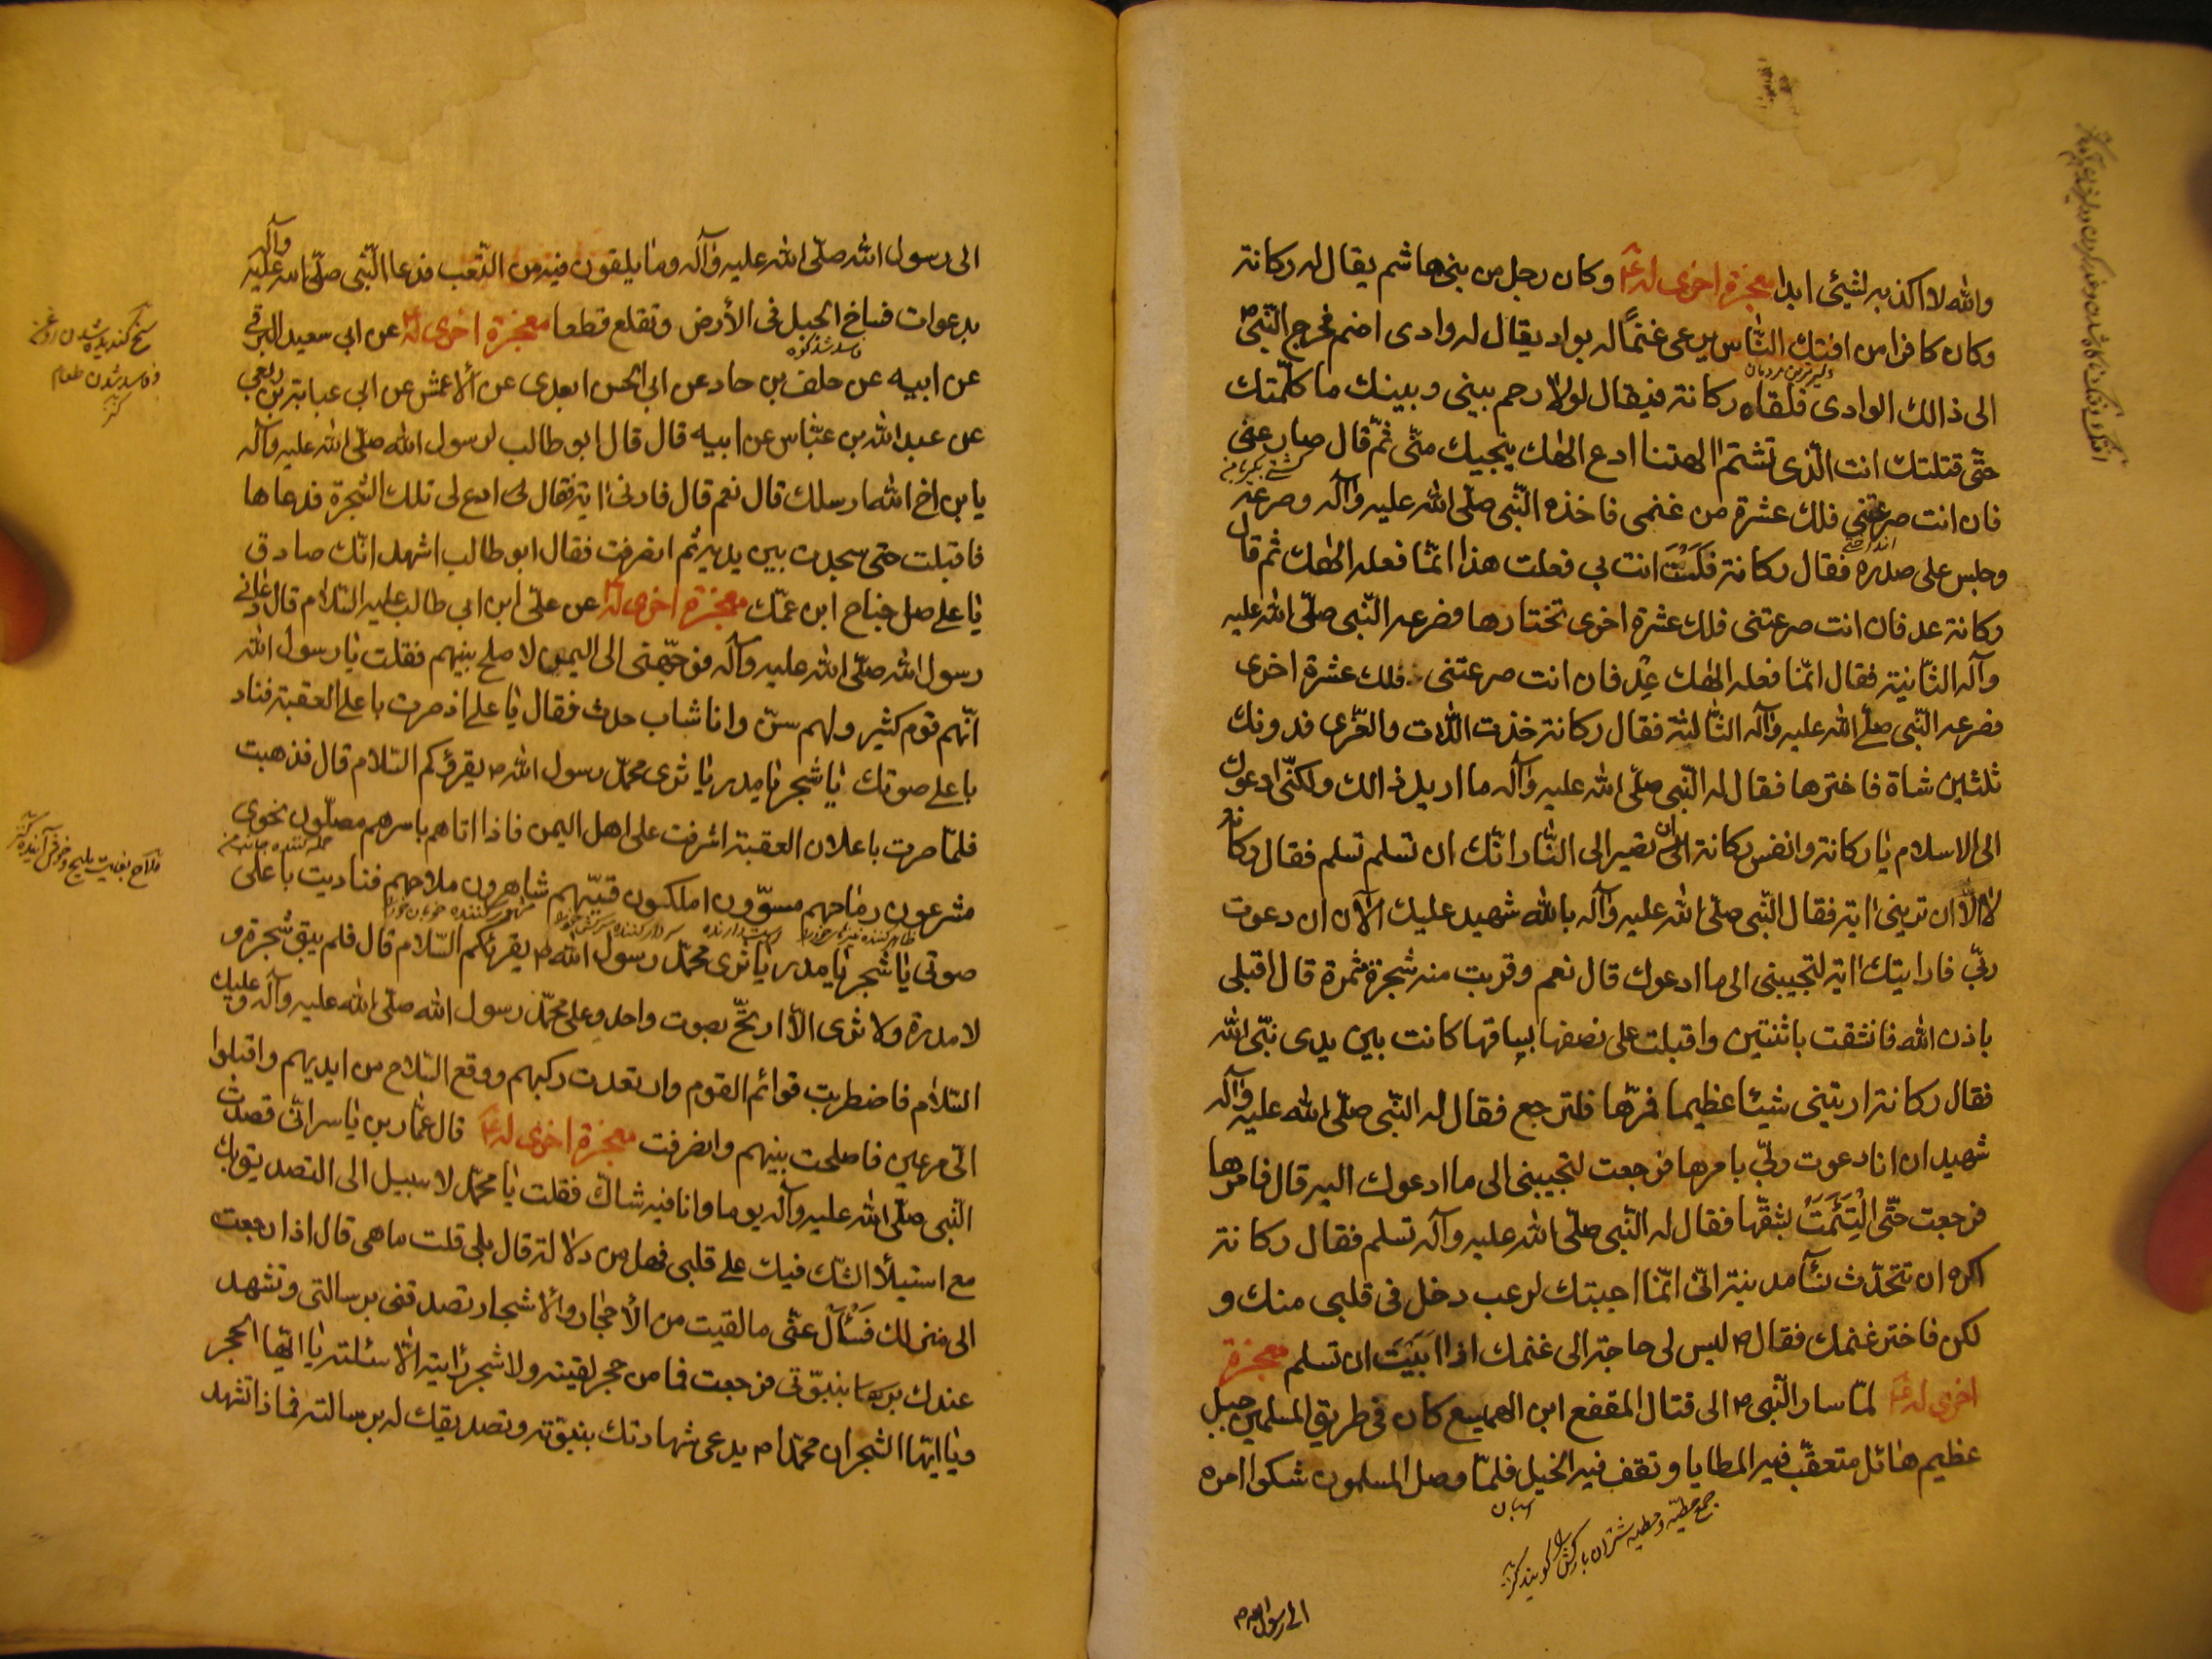 والله لا اكذبه لشيئى ابدا معجزة اخرى له وكان رجل من بنى هاشم يقال له ركانة
وكان كافرا من افتك الناس يرعى غنمًا له بواد يقال له وادى اضم فخرج النّبى ص
دلير ترين مردمان
الى ذالك الوادى فلقاه ركانة فيقال لولا رحم بينى وبينك ما كلّمتك
حتّى قتلتك انت الّذى تشتم الهتنا ادع الهك ينجيك منّى ثمّ قال صارعنى
فان انت صرعتنى فلك عشرة من غنمى فاخذه النّبى صلّى الله عليه وآله وصرعه
وجلس على صدره فقال ركانة فلست انت بى فعلت هذا انّما فعله الهك ثم قال
ركانة عد فان انت صرعتنى فلك عشرة اخرى تختارها فصرعه النّبى صلّى الله عليه
وآله الثّانية فقال انّما فعله الهك عد فان انت صرعتنى فلك عشرة اخرى
فصرعه النّبى صلّى الله عليه وآله الثّالثة فقال ركانة خذت اللات والعزّى فدونك
ثلثين شاة فاخترها فقال له النّبى صلّى الله عليه وآله ما اريد ذالك ولكنّى ادعوك
الى الاسلام يا ركانة وانفس ركانة الى ان تصير الى النّار انّك ان تسلم تسلم فقال ركانة
لا الّا ان ترينى اية فقال النّبى صلّى الله عليه وآله بالله شهيد عليك الآن ان دعوت
ربّى فارايتك اية لتجيبنى الى ما ادعوك قال نعم وقربت منه شجرة ثمرة قال اقبلى
باذن الله فانشقت باثنتين واقبلت على نصفها بساقها كانت بين يدى نبّى الله
فقال ركانة اريتنى شيئا عظيما فمرّها فلترجع فقال له النّبى صلّى الله عليه وآله
شهيد ان انا دعوت ربّى بامرها فرجعت لتجيبنى الى ما ادعوك اليه قال فامرها
فرجعت حتّى التئمت بشقّها فقال له النّبى صلّى الله عليه وآله تسلم فقال ركانة
اكره ان تتحدّث نسآء مدينة انّى انّما اجبتك لرعب دخل فى قلبى منك و
لكن فاختر غنمك فقال ص ليس لى حاجة الى غنمك اذا ابيت ان تسلم معجزة
اخرى له لمّا سار النّبى ص الى قتال المقفع ابن الهميسع كان فى طريق المسلمين جبل
عظيم هائل متعقّب فيه المطايا وتقف فيه الخيل فلمّا وصل المسلمون شكوا امره
اسبان
جمع مطيّه ومطيه شتران باركش را كويند كنز
الى رسول الله ص
الى رسول الله صلّى الله عليه وآله وما يلقون فيه من التّعب فدعا النّبى صلّى الله عليه وآله
بدعوات فساخ الجبل فى الأرض وتقلع قطعا معجزة اخرى له عن ابى سعيد البرقى
عن ابيه عن خلف بن حاد عن ابى الحسن العبدى عن الأعمش عن ابى عباية بن ربعى
عن عبد الله بن عبّاس عن ابيه قال قال ابو طالب لرسول الله صلّى الله عليه وآله
يا بن اخ الله ارسلك قال نعم قال فادنى اية فقال لى ادع لى تلك الشّجرة فدعاها
فاقبلت حتى سجدت بين يديه ثم انصرفت فقال ابو طالب اشهد انّك صادق
يا على صل جناح ابن عمّك معجزة اخرى له عن علىّ ابن ابى طالب عليه السّلام قال دعانى
رسول الله صلّى الله عليه وآله فوجّهنى الى اليمن لاصلح بينهم فقلت يا رسول الله
انّهم قوم كثير ولهم سنّ وانا شاب حدث فقال يا على اذ صرت باعلى العقبة فناد
باعلى صوتك يا شجر يا مدر يا ثرى محمّد رسول الله ص يقرؤكم السّلام قال فذهبت
فلمّا صرت باعلان العقبة اشرفت على اهل اليمن فاذا اتاهم باسرهم مصلّون نحوى
مشرعون رماحهم مسوّون املكون قسيّهم شاهرون ملاحهم فناديت باعلى
صوتى يا شجر يا مدر يا ثرى محمّد رسول الله ص يقرئكم السّلام قال فلم يبق شجرة و
لا مدرة ولا ثرى الّا اريجّ بصوت واحد وعلى محمّد رسول الله صلّى الله عليه وآله وعليك
السّلام فاضطربت قوائم القوم وارتعدت ركبهم ووقع السّلاح من ايديهم واقبلوا
الىّ مسرعين فاصلحت بينهم وانصرفت معجزة اخرى له قال عمّار بن ياسر انّى قصدت
النّبى صلّى الله عليه وآله يوما وانا فيه شاكّ فقلت يا محمّد لا سبيل الى التصديق بك
مع استيلأ الشّك فيك على قلبى فهل من دلالة قال بلى قلت ما هى قال اذا رجعت
الى منزلك فسئل عنّى ما لقيت من الأحجار والأشجار تصدقنى برسالتى وتشهد
عندك بنبوّتى فرجعت فما من حجر لقيته ولا شجر رايته الّا سئلته يا ايّها الحجر
ويا ايّها الشجر ان محمّدا م يدعى شهادتك بنبوّته وتصديقك له برسالته فماذا تشهد